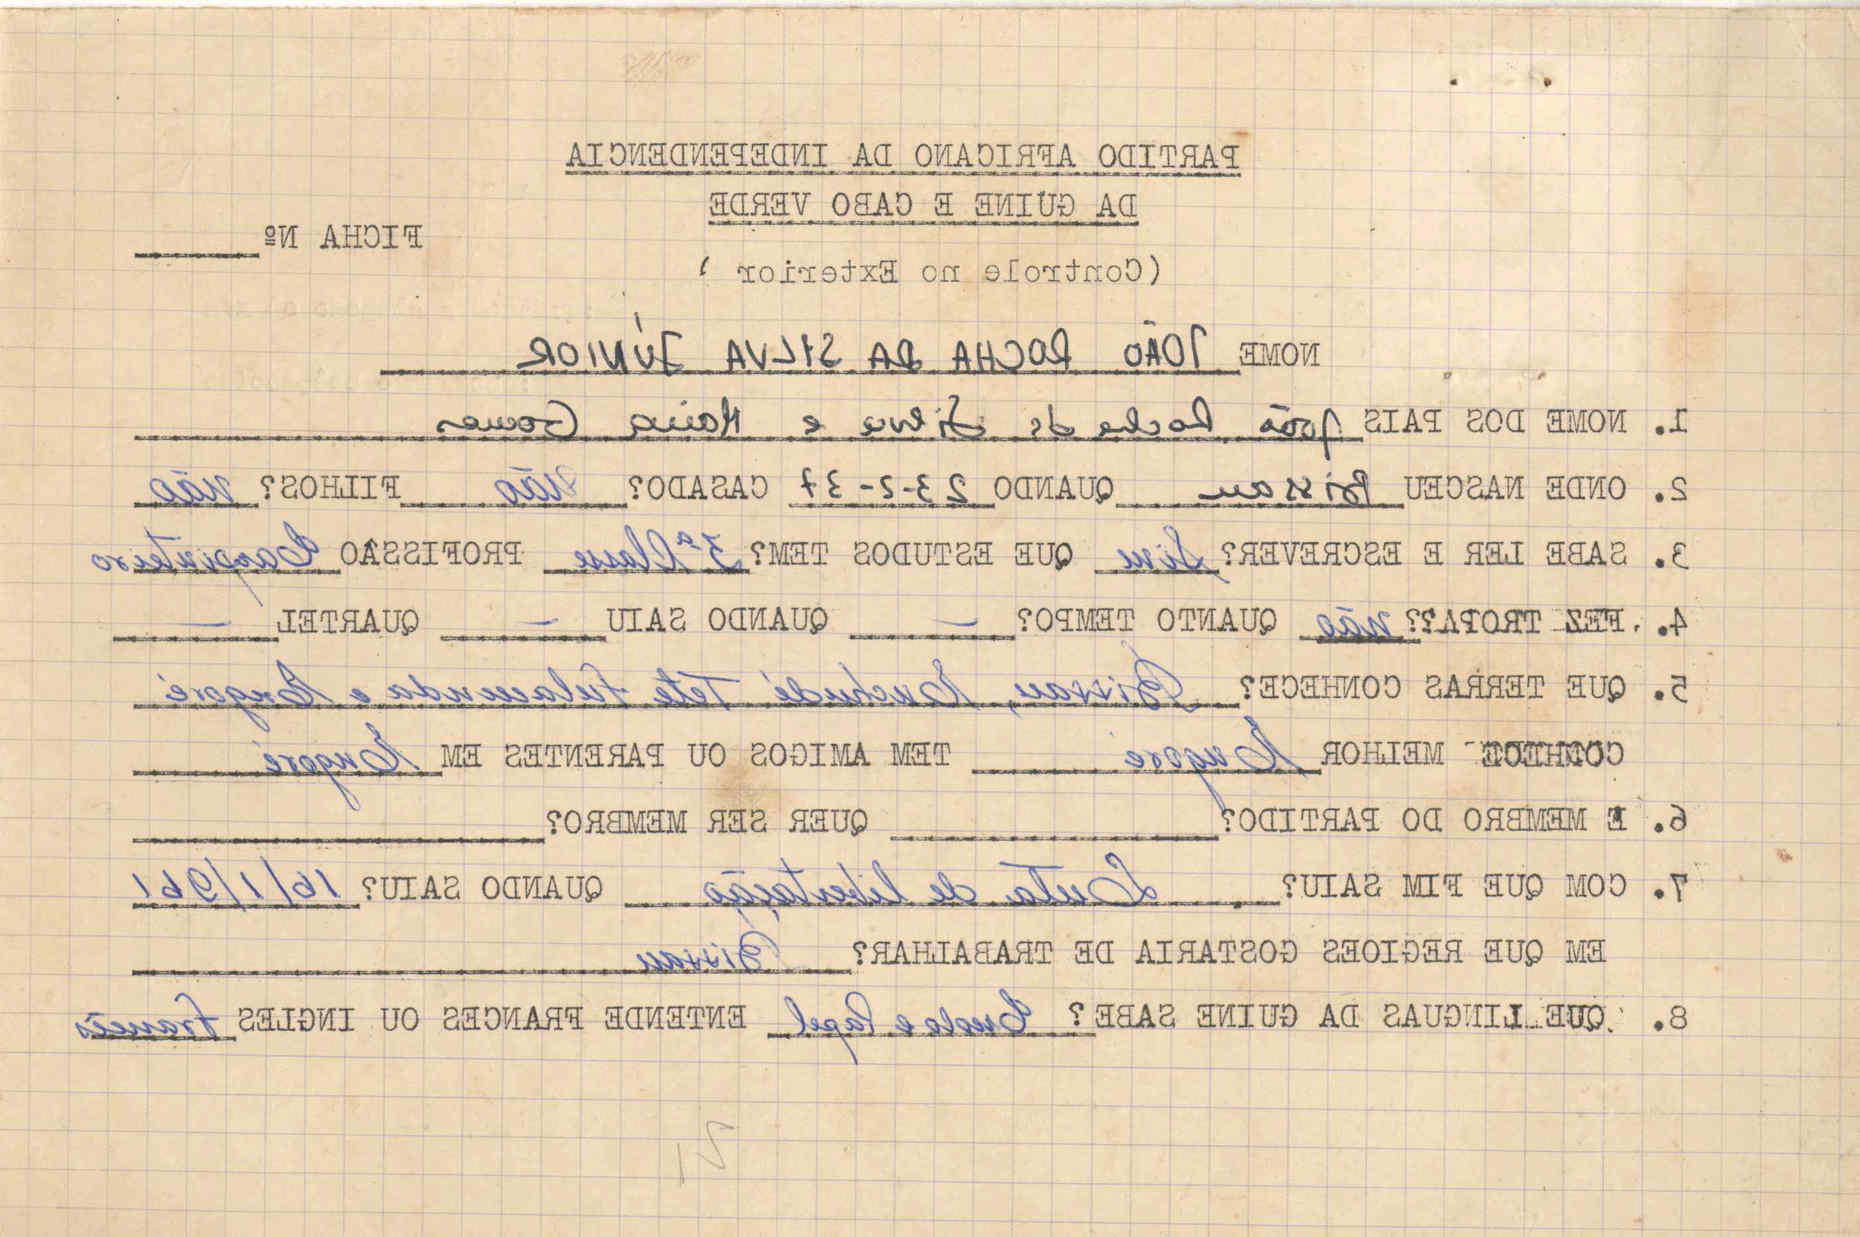 PARTIDO AFRICANO DA INDEPENDENCIA
DA GUINE E CABO VERDE
FICHA Nº
(Controle no Exterior )
NOME JOÃO ROCHA DA SILVA JÚNIOR
1. NOME DOS PAIS João Rocha da Silva e Maria Gomes
2. ONDE NASCEU Bissau QUANDO 23-2-37 CASADO? Não FILHOS? não
3. SABE LER E ESCREVER? Sim QUE ESTUDOS TEM? 3ª Classe PROFISSÃO Carpinteiro
4. FEZ TROPA?? não QUANTO TEMPO? — QUANDO SAIU — QUARTEL —
5. QUE TERRAS CONHECE? Bissau, Enchudé Tite Fulacunda e Engoré
CONHECE MELHOR Engoré TEM AMIGOS OU PARENTES EM Engoré
6. E MEMBRO DO PARTIDO? QUER SER MEMBRO?
7. COM QUE FIM SAIU? Luta de libertação QUANDO SAIU? 16/1/961
EM QUE REGIOES GOSTARIA DE TRABALHAR? Bissau
8. QUE LINGUAS DA GUINE SABE? Crioulo e Papel ENTENDE FRANCES OU INGLES Francês